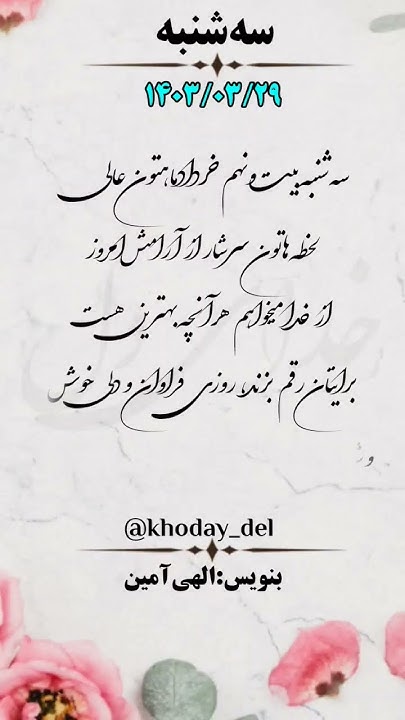 سه‌شنبه
۱۴۰۳/۰۳/۲۹
سه شنبه بیست و نهم خردادماهتون عالی
لحظه هاتون سرشار از آرامش امروز
از خدا میخواهم هر آنچه بهترین هست
برایتان رقم بزند، روزی فراوان و دلی خوش
@khoday_del
بنویس: الهی آمین